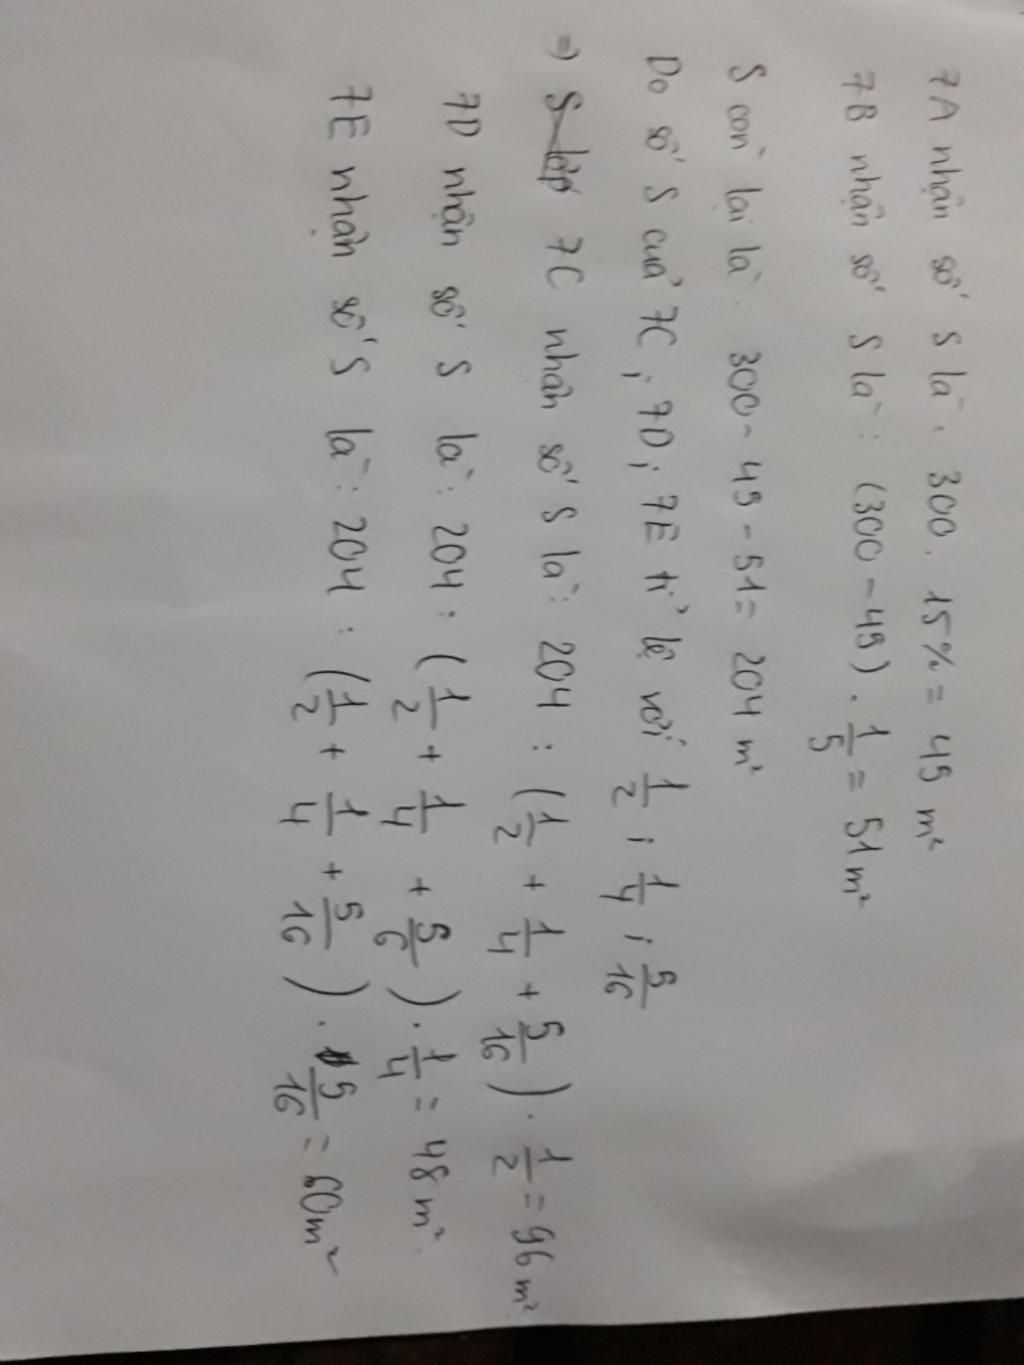 7A nhận số S là: 300. 15% = 45 m²
7B nhận số S là: (300 - 45) . 1/5 = 51m²
S còn lại là: 300 - 45 - 51 = 204 m²
Do số S của 7C; 7D; 7E tỉ lệ với 1/2 ; 1/4 ; 5/16
=> S lớp 7C nhận số S là: 204 : (1/2 + 1/4 + 5/16) . 1/2 = 96 m²
7D nhận số S là: 204 : (1/2 + 1/4 + 5/6) . 1/4 = 48 m²
7E nhận số S là: 204 : (1/2 + 1/4 + 5/16) . 5/16 = 60m²